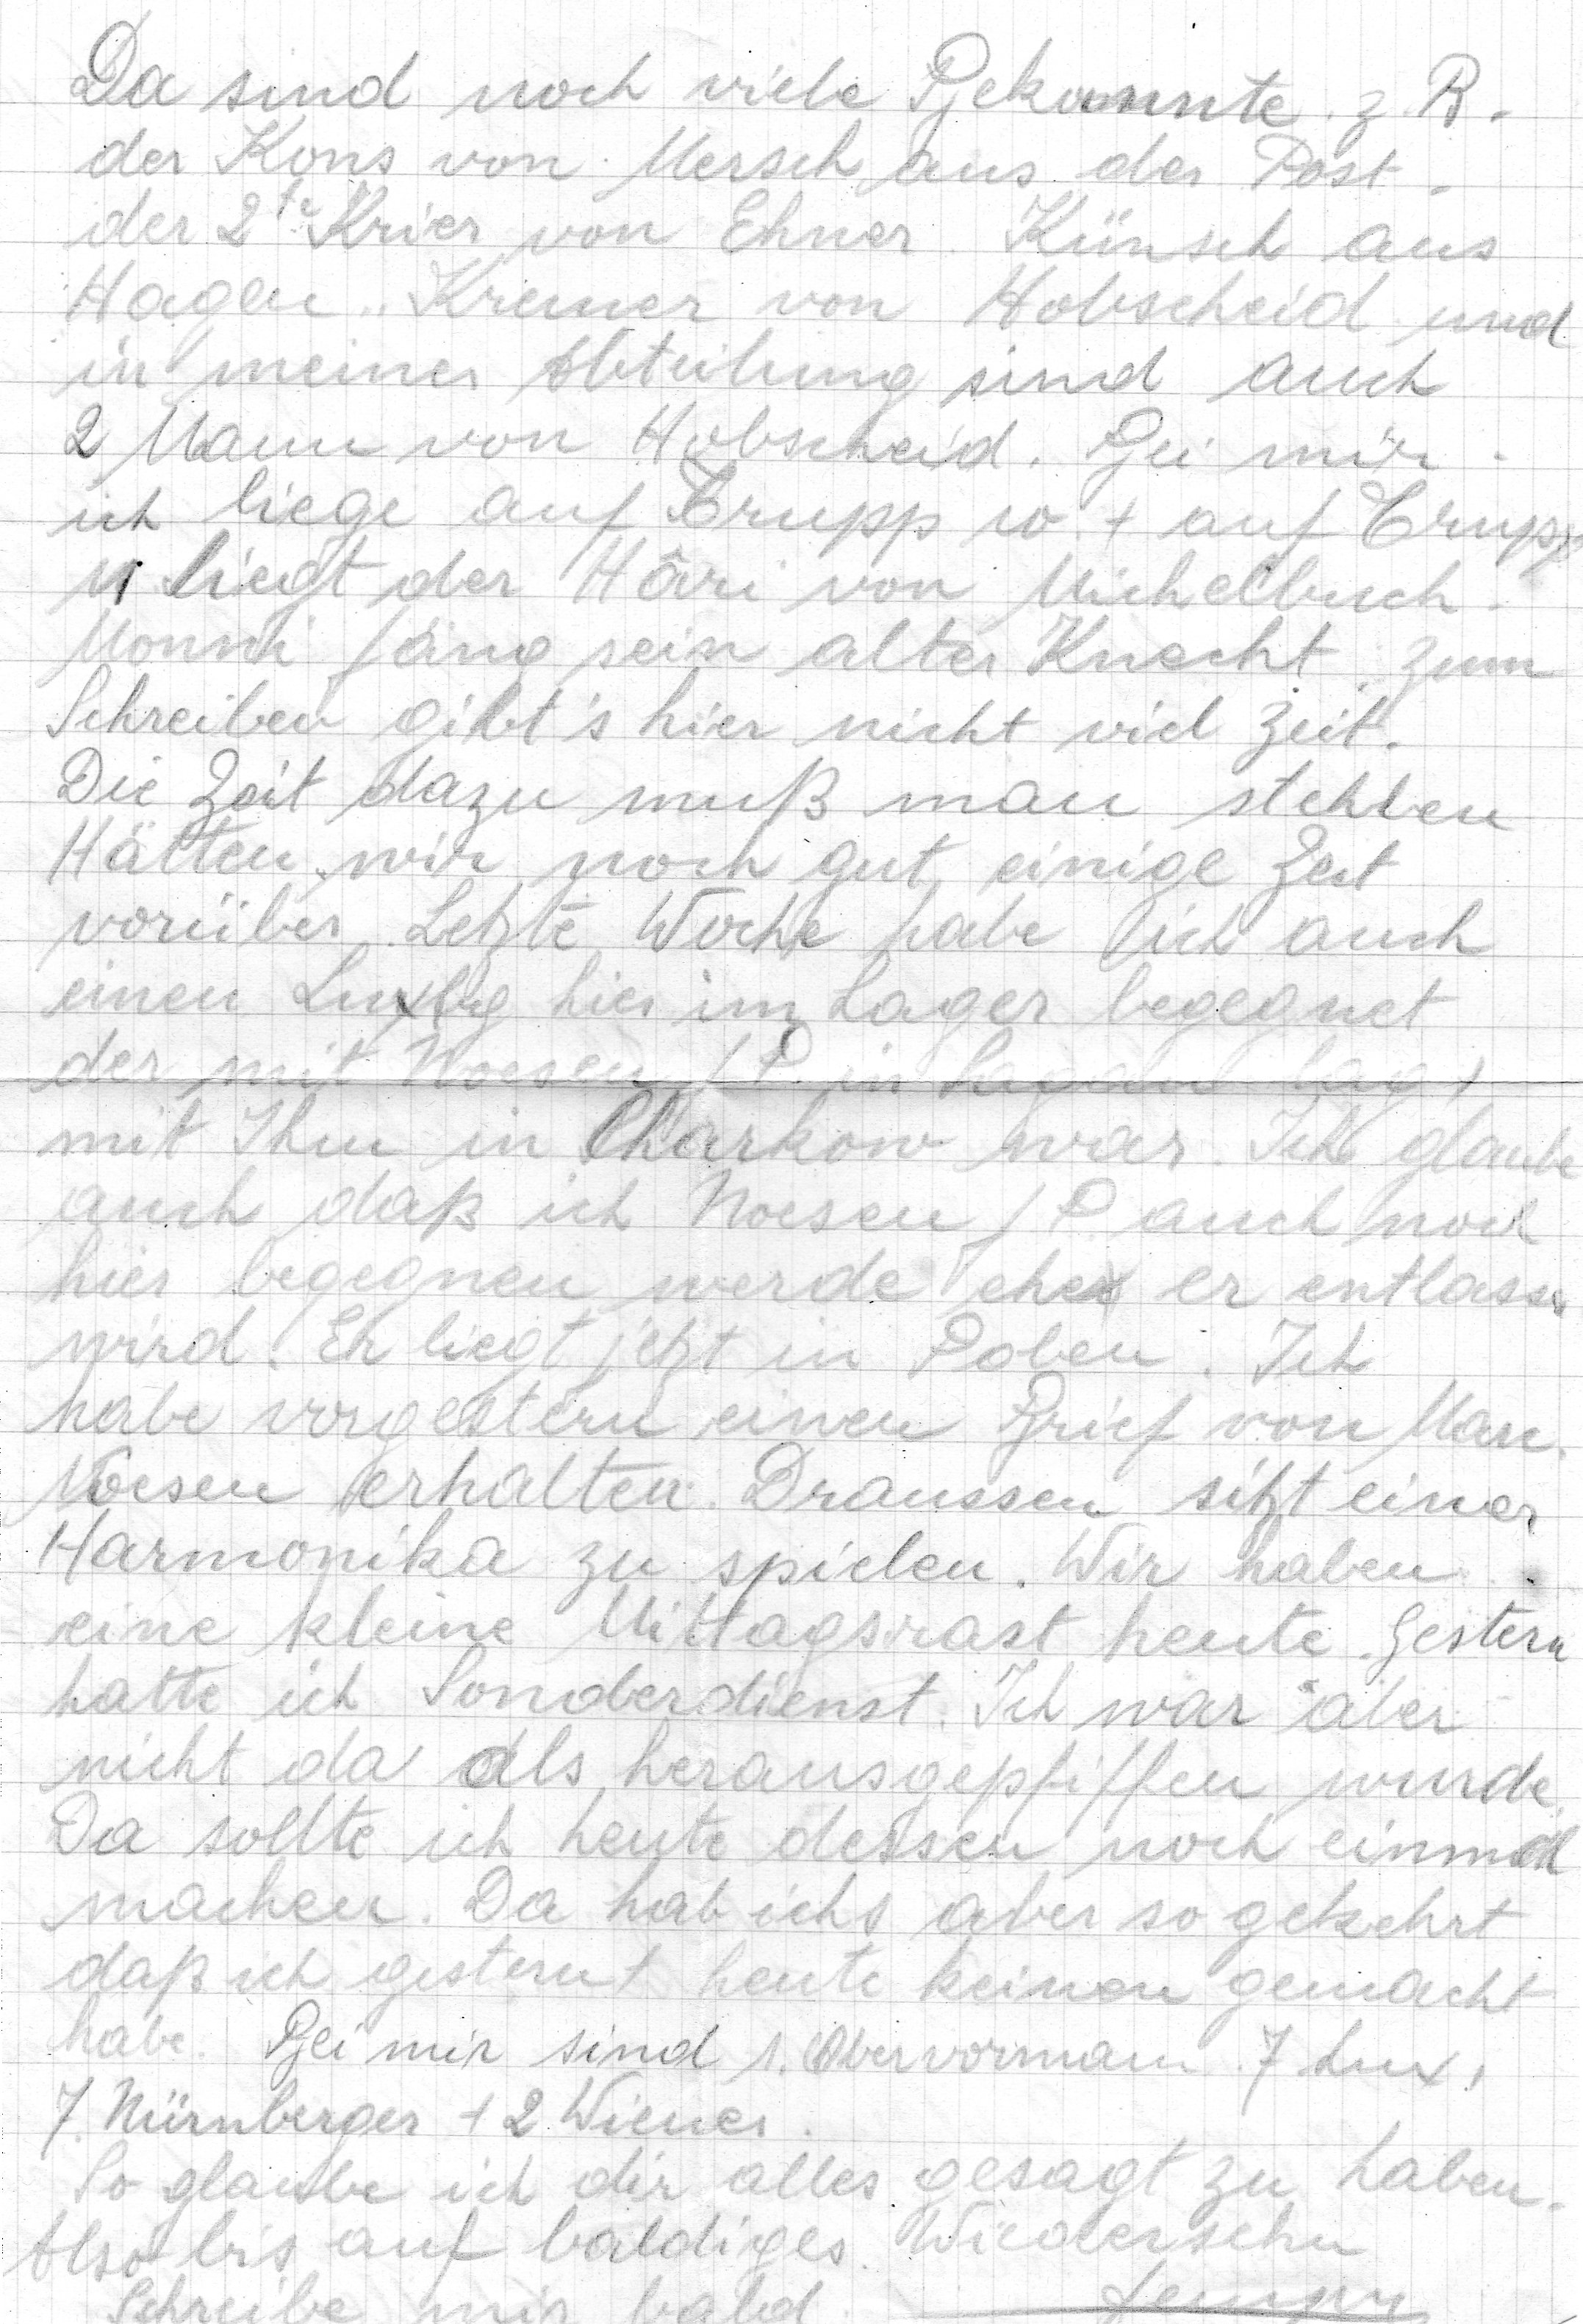 Da sind noch viele Bekannte. z. B.
der Kons von Mersch aus der Post.
der 2te Krier von Ehner. Künsch aus
Hagen. Kremer von Hobscheid und
in meiner Abteilung sind auch
2 Mann von Hobscheid. Bei mir
ich liege auf Trupp 10. + auf Trupp
11 liegt der Härri von Michelbuch.
Monni Jäng sein alter Knecht. Zum
Schreiben gibt's hier nicht viel Zeit.
Die Zeit dazu muß man stehlen
Hätten wir noch gut einige Zeit
vorüber. Letzte Woche habe ich auch
einen Luxbg hier im Lager begegnet
der mit Noesen J P. in Lag,
mit Ihm in Charkow war. Ich glaube
auch daß ich Noesen J P auch noch
hier begegnen werde eher er entlassen
wird. Er liegt jetzt in Polen. Ich
habe vorgestern einen Brief von Marc.
Noesen erhalten. Draussen sitzt einer
Harmonika zu spielen. Wir haben
eine kleine Mittagsrast heute. Gestern
hatte ich Sonderdienst. Ich war aber
nicht da als herausgepfiffen wurde.
Da sollte ich heute dessen noch einmal
machen. Da hab ichs aber so gekehrt
daß ich gestern + heute keinen gemacht
habe. Bei mir sind 1. Obervormann. 7 Lux,
7. Nürnberger + 2 Wiener.
So glaube ich dir alles gesagt zu haben.
Also bis auf baldiges. Wiedersehn
Schreibe mir bald.